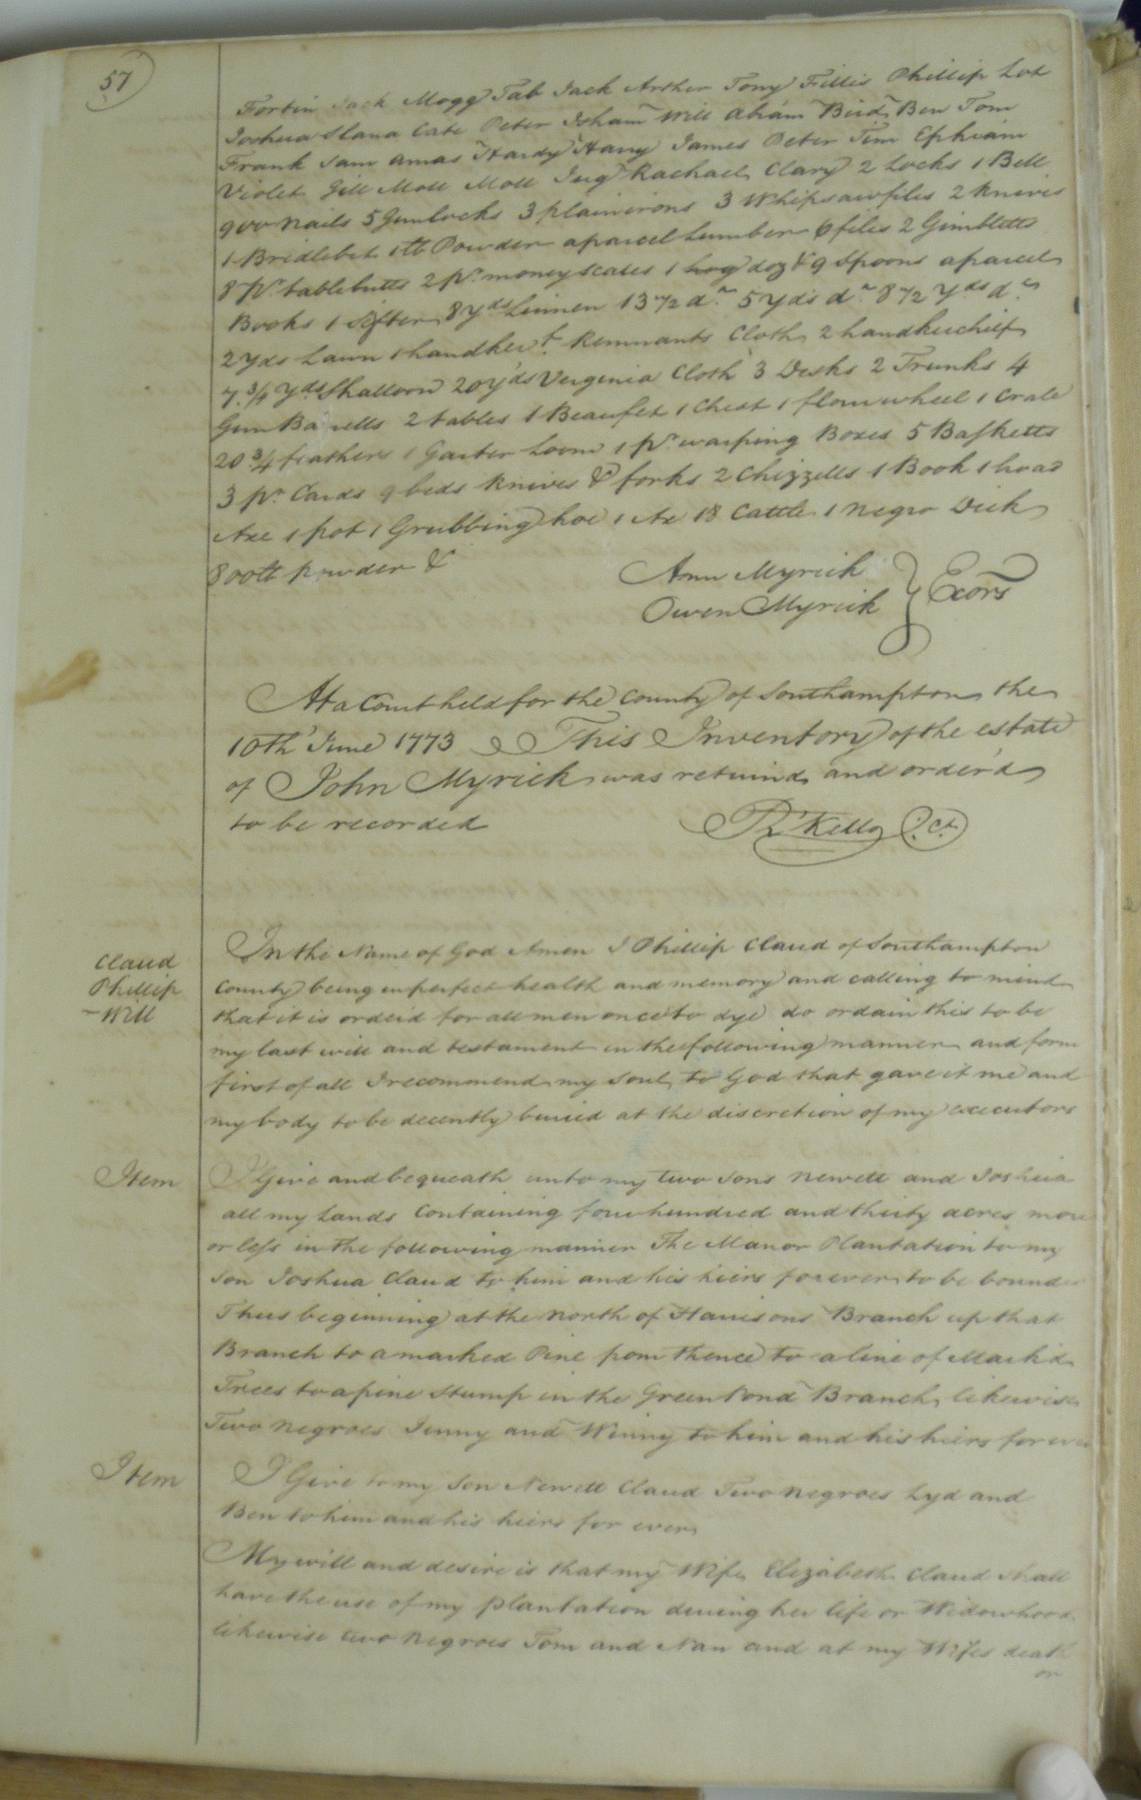 57
Fortin Jack Mogg Tab Jack Arther Tony Fillis Phillip Lot
Joshua Slana Cate Peter Isham Will Abram Bird Ben Tom
Frank Sam Amas Hardy Harry James Peter Tim Ephraim
Violet Gill Moll Moll Jug Rachael Clary 2 Locks 1 Bell
900 nails 5 Gunlocks 3 plainirons 3 Whipsawfiles 2 knives
1 Bridlebit 1 lb Powder a parcel Lumber 6 files 2 Gimbletts
8 pr. tablebutts 2 pr. money scales 1 hog doz & 9 Spoons a parcel
Books 1 Sifter 8 yds Linnen 13 1/2 do. 5 yds do. 8 1/2 yds do.
2 yds Lawn 1 handkerf. Remnants Cloth 2 handkerchief
7 3/4 yds Shalloon 20 yds Verginia Cloth 3 Desks 2 Trunks 4
Gun Barells 2 tables 1 Beaufet 1 Chest 1 flour wheel 1 Crate
20 3/4 feathers 1 Garter Loom 1 pr. warping Boxes 5 Basketts
3 pr. Cards 9 beds knives & forks 2 Chizzells 1 Book 1 broad
Axe 1 pot 1 Grubbing hoe 1 Ax 18 Cattle 1 negro Dick
800 lb powder &
Ann Myrick
Owen Myrick } Exors
At a Court held for the County of Southampton the
10th June 1773 This Inventory of the estate
of John Myrick was returnd and orderd
to be recorded
R Kello C.Ct.
Claud
Phillip
Will
In the Name of God Amen I Phillip Claud of Southampton
County being in perfect health and memory and calling to mind
that it is orderd for all men once to dye do ordain this to be
my last will and testament in the following manner and form
first of all I recommend my Soul to God that gave it me and
my body to be decently buried at the discretion of my executors
Item
I Give and bequeath unto my two Sons Newell and Joshua
all my Lands Containing four hundred and thirty acres more
or less in the following manner The Manor Plantation to my
Son Joshua Claud to him and his heirs forever to be bounded
Thus beginning at the north of Harrisons Branch up that
Branch to a marked Pine from thence to a line of Mark'd
Trees to a pine Stump in the Green Pond Branch likewise
Two negroes Jenny and Winny to him and his heirs for ever
Item
I Give to my Son Newell Claud Two negroes Lyd and
Ben to him and his heirs for ever
My will and desire is that my Wife Elizabeth Claud Shall
have the use of my plantation during her life or Widowhood
likewise two negroes Tom and Nan and at my Wifes death
or